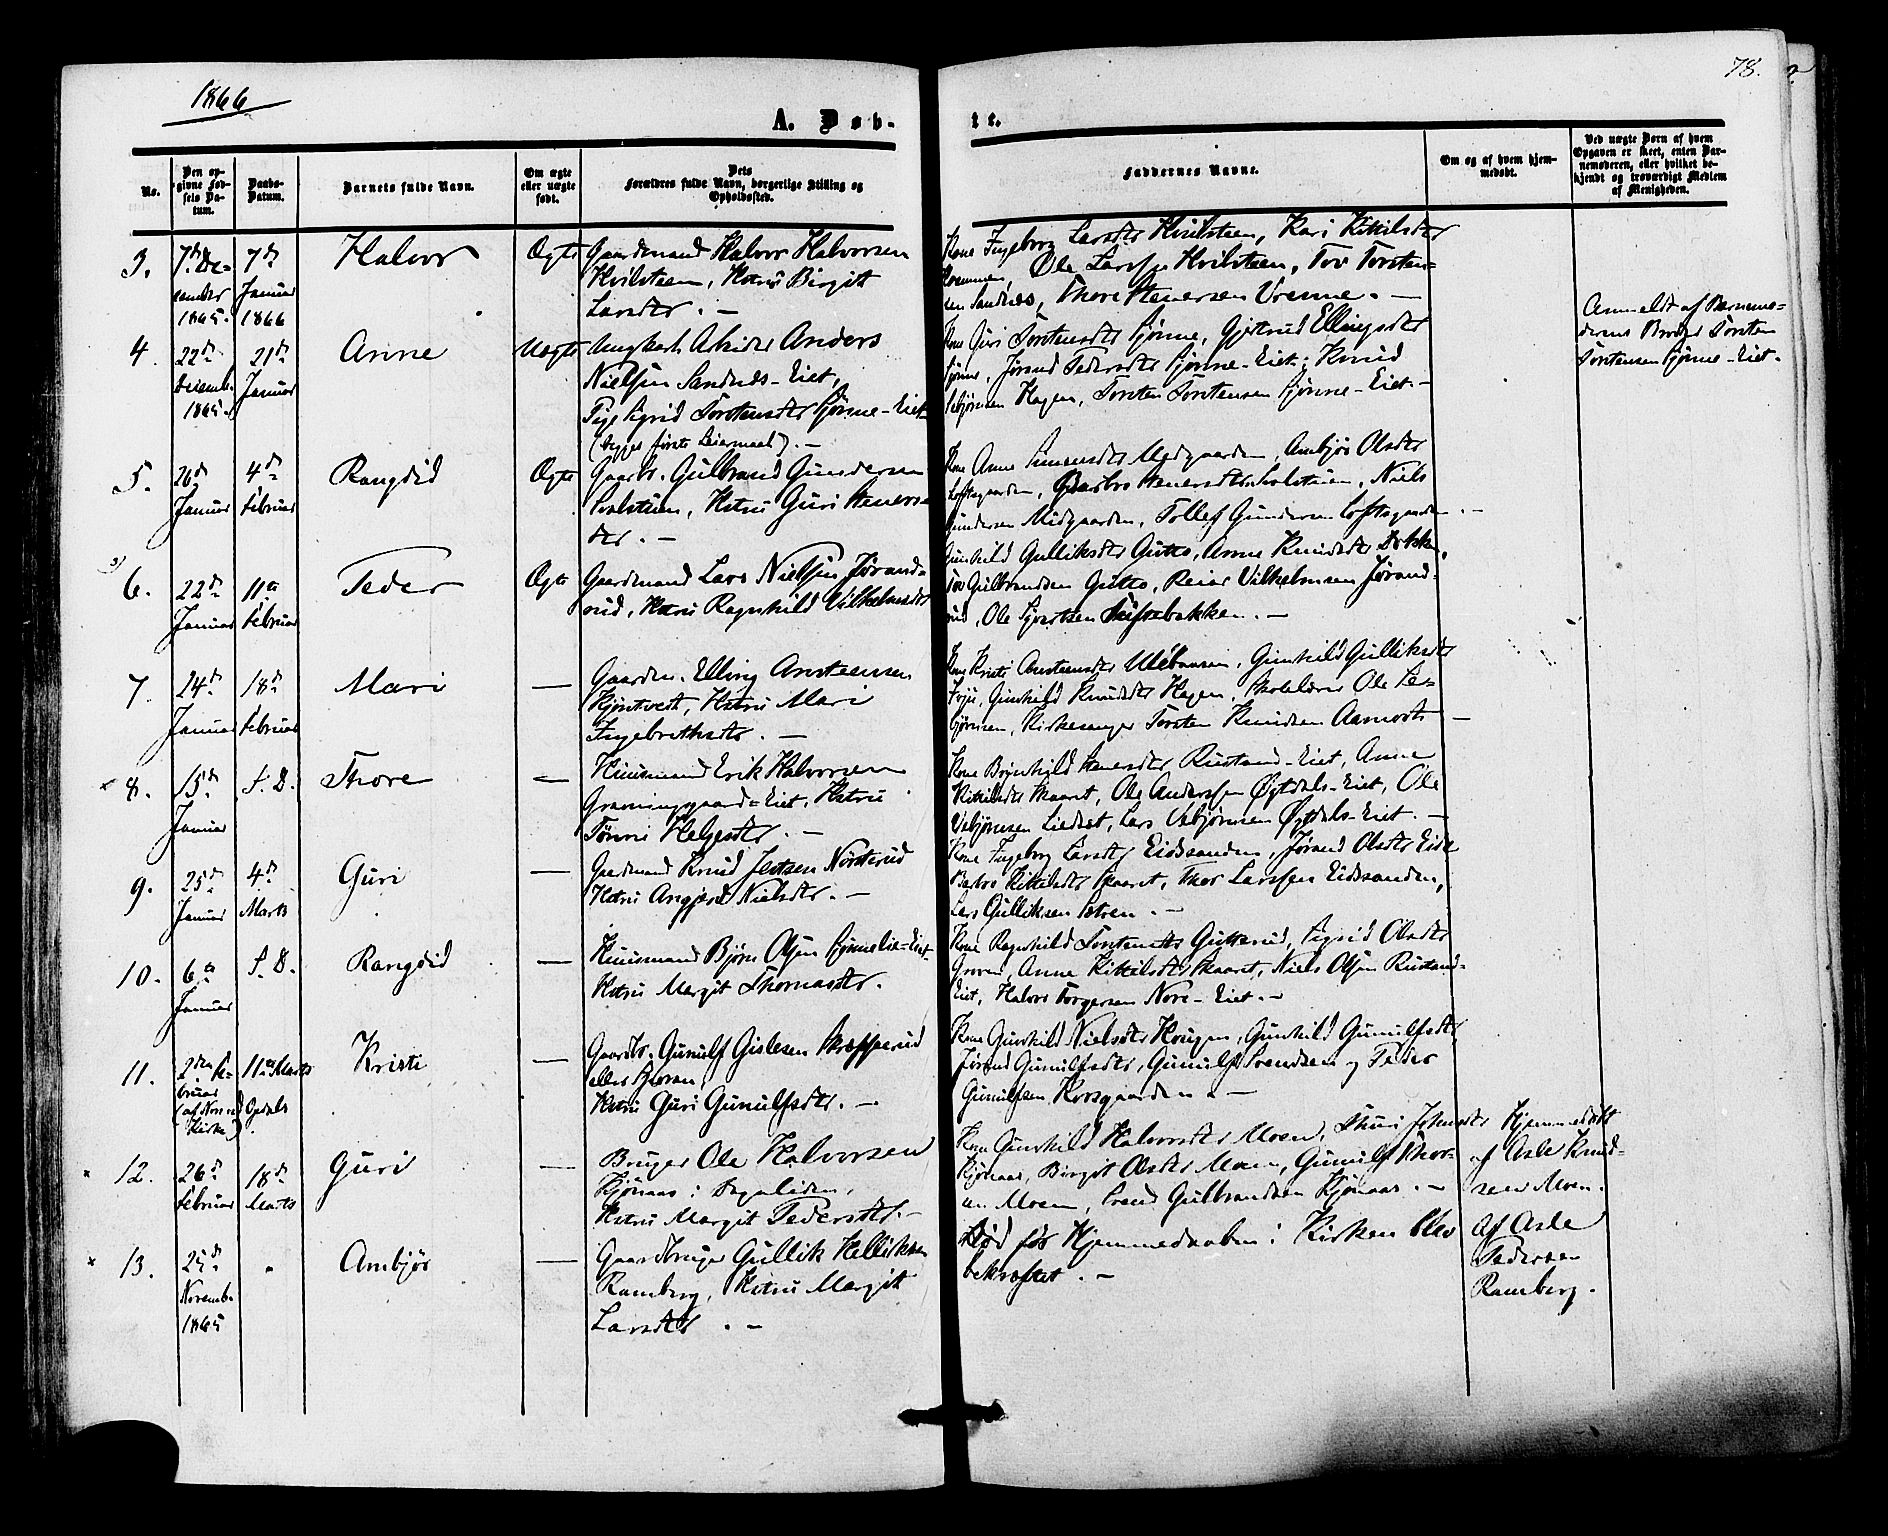 1866
78.
A. Døb-
te.
No.
Den op-
givne Fød-
sels Da-
tum.
Daabs-
Datum.
Barnets fulde Navn.
Om ægte
eller uægte
født.
Dets
Forældres fulde Navn, borgerlige Stilling og
Opholdssted.
Faddernes Navne.
Om og af hvem hjem-
medøbt.
Ved uægte Børn af hvem
Opgaven er skeet, enten Bar-
nemoderen, eller hvilket be-
kjendt og troværdigt Medlem
af Menigheden.
3.
7de De-
cember
1865.
7de
Januar
1866
Halvor
Ægte
Gaardmand Halvor Halvorsen
Kvilsteen, Hstru Birgit
Larsdtr. —
Kone Ingeborg Larsdtr Kvilsteen, Kari Kittilsdtr
Ole Larssen Kvilsteen, Tov Torsten-
sen Sandnes, Thore Stenersen Vrenne. —
4.
22de
Decemb.
1865.
21de
Januar
Anne
Uægte
Ungkarl Arbeider Anders
Nielsen Sandnes-Eiet,
Pige Sigrid Torstensdtr Sjønne-Eiet
(begges første Leiermaal). —
Kone Guri Torstensdtr Sjønne, Gjertrud Ellingsdtr
Sjønne, Jørand Pedersdtr Sjønne-Eiet, Knud
Hagen, Torsten Torstensen Sjønne-Eiet. —
Anmeldt af Barnemo-
derens Broder Torsten
Torstensen Sjønne-Eiet.
5.
26de
Januar
4de
Februar
Rangdid
Ægte
Gaardbr. Gulbrand Gundersen
Hstru Guri Steners-
dtr. —
Kone Anne Simensdtr Medgaarden, Ambjør Olsdtr
Loftsgaarden, Barbro Stenersdtr Niels
Gundersen Midgaarden, Tollef Gundersen Loftsgaarden. —
6.
22de
Januar
11te
Februar
Peder
Ægte
Gaardmand Lars Nielsen Jørand-
rud, Hstru Ragnhild Vilhelmsdtr
Gunhild Gulliksdtr Gutto, Anne Knudsdtr
Tov Gulbrandsen Gutto, Reiar Vilhelmsen Jørand-
rud, Ole Sjvertsen Tuftebakken. —
7.
24de
Januar
18de
Februar
Mari
—
Gaardm. Elling Arnsteensen
Kjøntvedt, Hstru Mari
Ingebrethsdtr. —
Kone Kristi Arnsteensdtr Gunhild Gulliksdtr
Gunhild Knudsdtr Hagen, Skolelærer Ole Es-
bjørnsen, Kirkesanger Torsten Knudsen Aamodt —
8.
15de
Januar
S. D.
Thore
—
Huusmand Erik Halvorsen
Gravningsgaard-Eiet, Hstru
Tonni Helgesdtr. —
Kone Bøynhild Stenersdtr Rustand-Eiet, Anne
Kittilsdtr Skaaret, Ole Anderssen Øygdals-Eiet, Ole
Vebjørnsen Liedset, Lars Vebjørnsen Øygdals-Eiet. —
9.
25de
Januar
4de
Marts
Guri
—
Gaardmand Knud Jertsen Norsterud
Hstru Angjerd Nielsdtr. —
Kone Ingeborg Larsdtr Eidssanden, Jørand Olsdtr Eide
Barbro Kittilsdtr Skaaret, Thor Larssen Eidssanden,
Lars Gulliksen Sætren. —
10.
6te
Januar
S. D.
Rangdid
—
Huusmand Bjørn Olsen Sjønnelie-Eiet
Hstru Margit Thomasdtr.
Kone Ragnhild Torstensdtr Gutterud, Sigrid Olsdtr
Groven, Anne Kittilsdtr Skaaret, Niels Olsen Rustand-
Eiet, Halvor Torgersen Nore-Eiet. —
11.
2den Fe-
bruar
(af Nore
Kirke)
11te Marts
Opdals
Kristi
—
Gaardbr. Gunulf Gislesen Skropperud
eller
Hstru Guri Gunulfsdtr. —
Kone Gunhild Nielsdtr Haugen, Gunhild Gunulfsdtr,
Jørand Gunulfsdtr, Gunulf Svendsen og Peder
Gunulfsen Korsgaarden. —
12.
26de
Februar
18de
Marts
Guri
—
Bruger Ole Halvorsen
Kjønaas i Dagaliden,
Hstru Margit Pedersdtr. —
Kone Gunhild Halvorsdtr Moen, Thuri Johnsdtr
Kjønaas, Birgit Olsdtr Moen, Gunulf Thor-
sen Moen, Svend Gulbrandsen Kjønaas. —
Hjemmedøbt
af Asle Knud-
sen Moen.
13.
25de
Novemb.
1865
"
Ambjør
—
Gaardbruger Gullik Helliksen
Ramberg, Hstru Margit
Larsdtr. —
Død før Hjemmedaaben i Kirken blev
bekræftet. —
Af Asle
Pedersen
Ramberg.